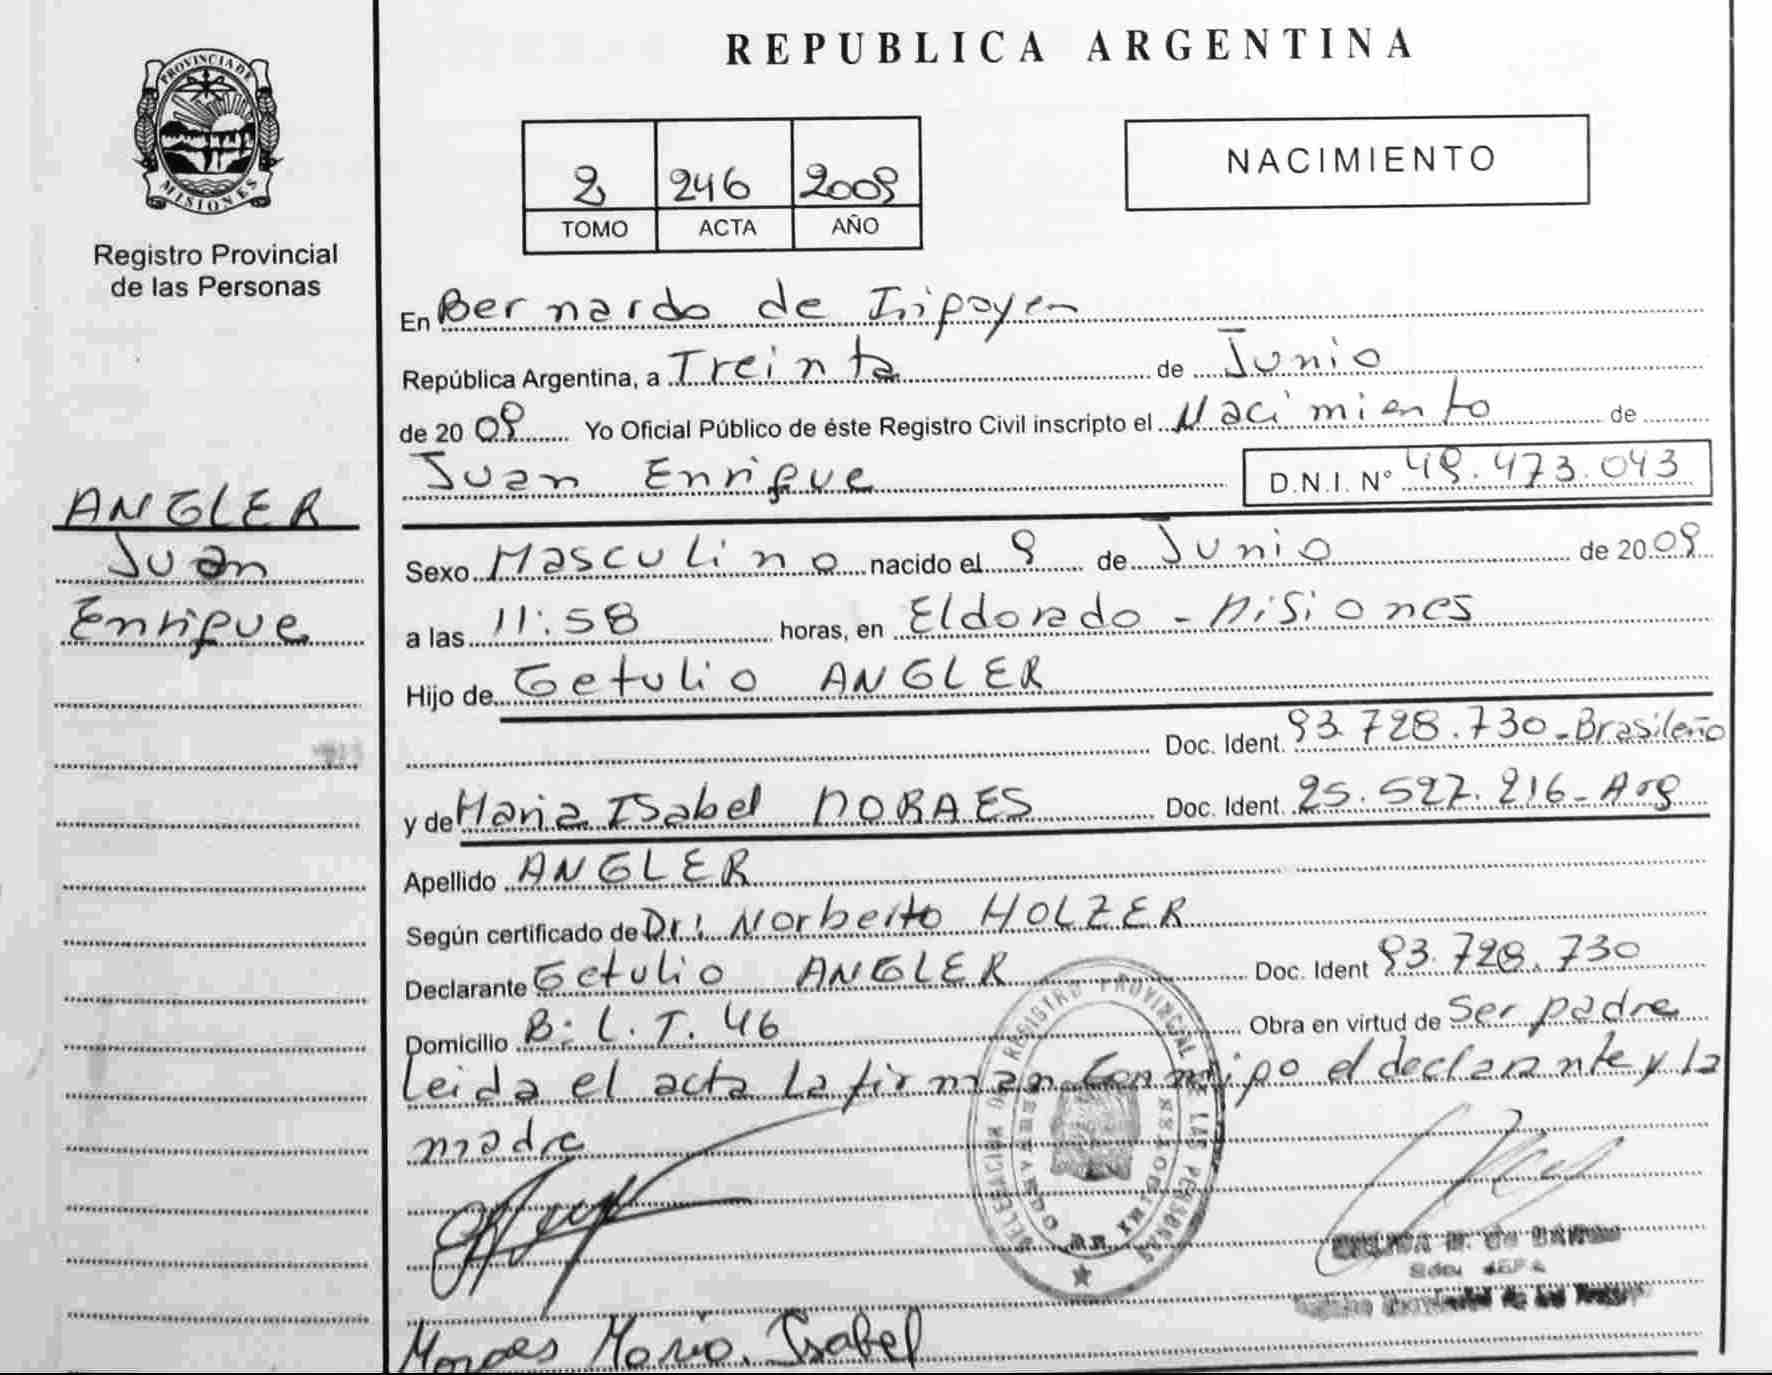 PROVINCIA DE
MISIONES
Registro Provincial
de las Personas
ANGLER
Juan
Enrique
REPUBLICA ARGENTINA
2 246 2009
TOMO ACTA AÑO
NACIMIENTO
En Bernardo de Iripoyen
República Argentina, a Treinta de Junio
de 20 09 Yo Oficial Público de éste Registro Civil inscripto el Nacimiento de
Juan Enrique D.N.I. Nº 49.473.043
Sexo Masculino nacido el 9 de Junio de 20 09
a las 11:58 horas, en Eldorado - Misiones
Hijo de Getulio ANGLER
Doc. Ident. 93.728.730 - Brasileño
y de Maria Isabel MORAES Doc. Ident. 25.527.216 - Arg
Apellido ANGLER
Según certificado de Dr: Norberto HOLZER
Declarante Getulio ANGLER Doc. Ident 93.728.730
Domicilio B: L. T. 46 Obra en virtud de Ser padre
Leida el acta la firman Conmigo el declarante y la
madre
DELEGACION DE REGISTRO PROVINCIAL DE LAS PERSONAS
BERNARDO DE IRIGOYEN
MISIONES
Moraes Maria Isabel